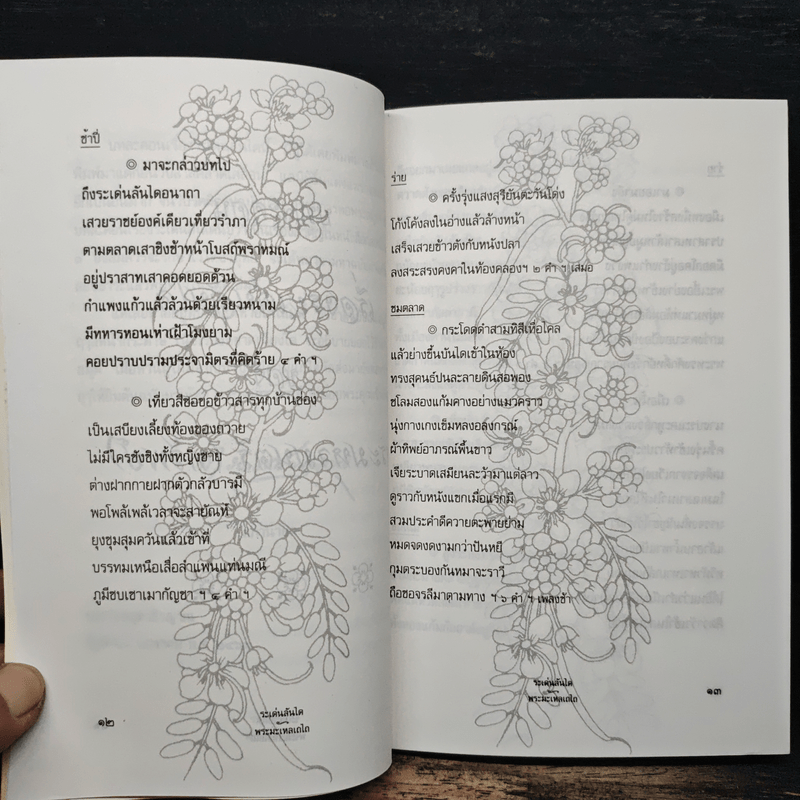 ช้าปี่
๏ มาจะกล่าวบทไป
ถึงระเด่นลันไดอนาถา
เสวยราชย์องค์เดียวเที่ยวรำภา
ตามตลาดเสาชิงช้าหน้าโบสถ์พราหมณ์
อยู่ปราสาทเสาคอดยอดด้วน
กำแพงแก้วแล้วล้วนด้วยเรียวหนาม
มีทหารหอนเห่าเฝ้าโมงยาม
คอยปราบปรามประจามิตรที่คิดร้าย ๔ คำ ฯ
๏ เที่ยวสีซอขอข้าวสารทุกบ้านช่อง
เป็นเสบียงเลี้ยงท้องของถวาย
ไม่มีใครชังชิงทั้งหญิงชาย
ต่างฝากกายฝากตัวกลัวบารมี
พอโพล้เพล้เวลาจะสายัณห์
ยุงชุมสุมควันแล้วเข้าที่
บรรทมเหนือเสื่อลำแพนแท่นมณี
ภูมีซบเซาเมากัญชา ฯ ๔ คำ ฯ
๑๒
ระเด่นลันได
พระมะเหลเถไถ
ร่าย
๏ ครั้งรุ่งแสงสุริยันตะวันโด่ง
โก้งโค้งลงในอ่างแล้วล้างหน้า
เสร็จเสวยข้าวตังกับหนังปลา
ลงสระสรงคงคาในท้องคลองฯ ๒ คำ ฯ เสมอ
ชมตลาด
๏ กระโดดดำสามทีสีเหื่อไคล
แล้วย่างขึ้นบันไดเข้าในห้อง
ทรงสุคนธ์ปนละลายดินสอพอง
ชโลมสองแก้มคางอย่างแมวคราว
นุ่งกางเกงเข็มหลงอลงกรณ์
ผ้าทิพย์อาภรณ์พื้นขาว
เจียระบาดเสมียนละว้ามาแต่ลาว
ดูราวกับหนังแขกเมื่อแรกมี
สวมประคำดีควายตะพายย่าม
หมดจดงดงามกว่าปันหยี
กุมตระบองกันหมาจะราวี
ถือซอจรลีมาตามทาง ฯ ๖ คำ ฯ เพลงช้า
ระเด่นลันได
พระมะเหลเถไถ
๑๓